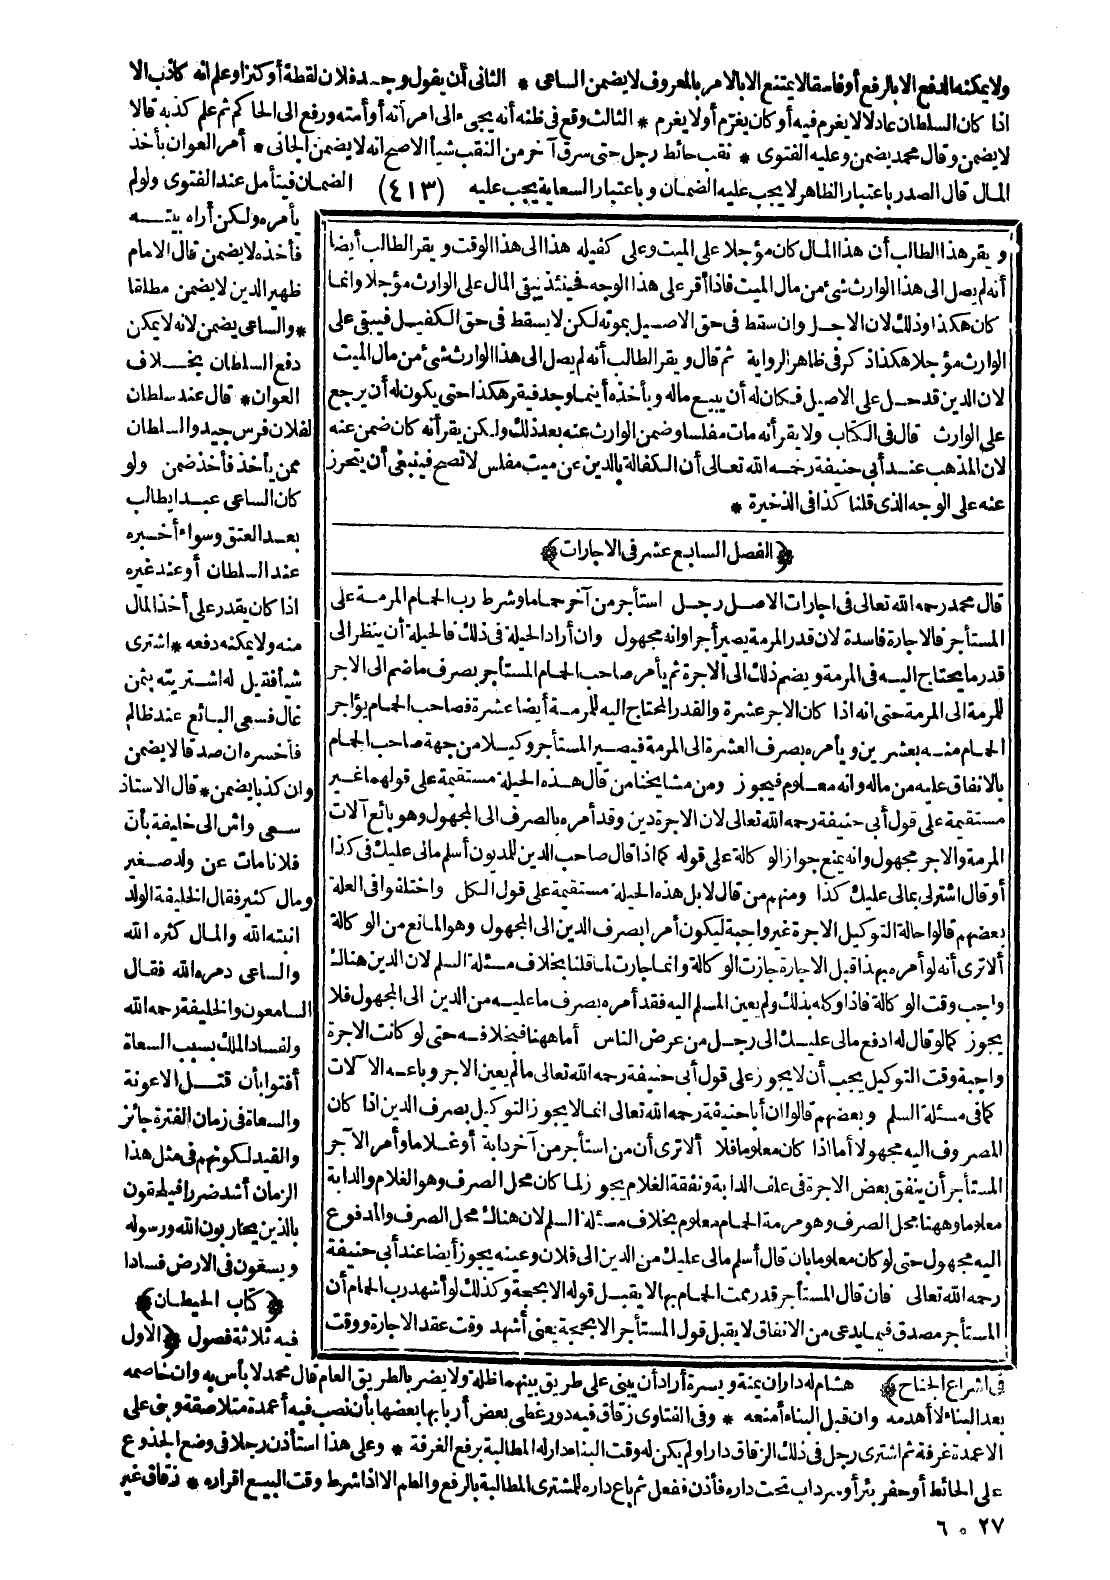 ولا يمكنه الدفع الا بالرفع أو فاسقا لا يمتنع الا بالامر بالمعروف لا يضمن الساعى * الثانى أن يقول وجد فلان لقطة أو كنزا وعلم انه كاذب الا
اذا كان السلطان عادلا لا يغرم فيه أو كان يغرّم أو لا يغرم * الثالث وقع فى ظنه أنه يجىء الى امرأته أو أمته ورفع الى الحاكم ثم علم كذبه قالا
لا يضمن وقال محمد يضمن وعليه الفتوى * نقب حائط رجل حتى سرق آخر من النقب شيأ الاصح انه لا يضمن الجانى * أمر العوان بأخذ
المال قال الصدر باعتبار الظاهر لا يجب عليه الضمان وباعتبار السعاية يجب عليه (٤١٣) الضمان فيتأمل عند الفتوى ولو لم
يأمره ولكن أراه بيته
فأخذه لا يضمن قال الامام
ظهير الدين لا يضمن مطلقا
* والساعى يضمن لانه لا يمكن
دفع السلطان بخلاف
العوان * قال عند سلطان
لفلان فرس جيد والسلطان
ممن يأخذ فأخذ ضمن ولو
كان الساعى عبدا يطالب
بعد العتق وسواء أخبره
عند السلطان أو عند غيره
اذا كان يقدر على أخذ المال
منه ولا يمكنه دفعه * اشترى
شيأ فقيل له اشتريته بثمن
غال فسعى البائع عند ظالم
فأخسره ان صدقا لا يضمن
وان كذبا يضمن * قال الاستاذ
سعى واش الى خليفة بأن
فلانا مات عن ولد صغير
ومال كثير فقال الخليفة الولد
انبته الله والمال كثره الله
والساعى دمره الله فقال
السامعون والخليفة رحمه الله
ولفساد الملك بسبب السعاة
أفتوا بأن قتل الاعونة
والسعاة فى زمان الفترة جائز
والقيد لكونهم فى مثل هذا
الزمان أشد ضررا فيلحقون
بالذين يحاربون الله ورسوله
ويسعون فى الارض فسادا
﴿ كتاب الحيطان ﴾
فيه ثلاثة فصول ﴿ الاول
ويقر هذا الطالب أن هذا المال كان مؤجلا على الميت وعلى كفيله هذا الى هذا الوقت ويقر الطالب أيضا
أنه لم يصل الى هذا الوارث شىء من مال الميت فاذا أقر على هذا الوجه فحينئذ يبقى المال على الوارث مؤجلا وانما
كان هكذا وذلك لان الاجل وان سقط فى حق الاصيل بموته لكن لا يسقط فى حق الكفيل فيبقى على
الوارث مؤجلا هكذا ذكر فى ظاهر الرواية ثم قال ويقر الطالب أنه لم يصل الى هذا الوارث شىء من مال الميت
لان الدين قد حل على الاصيل فكان له أن يبيع ماله ويأخذه أينما وجد فيقر هكذا حتى يكون له أن يرجع
على الوارث قال فى الكتاب ولا يقر أنه مات مفلسا وضمن الوارث عنه بعد ذلك ولكن يقر أنه كان ضمن عنه
لان المذهب عند أبى حنيفة رحمه الله تعالى أن الكفالة بالدين عن ميت مفلس لا تصح فينبغى أن يتحرز
عنه على الوجه الذى قلنا كذا فى الذخيرة *
﴿ الفصل السابع عشر فى الاجارات ﴾
قال محمد رحمه الله تعالى فى اجارات الاصل رجل استأجر من آخر حماما وشرط رب الحمام المرمة على
المستأجر فالاجارة فاسدة لان قدر المرمة يصير أجرا وانه مجهول وان أراد الحيلة فى ذلك فالحيلة أن ينظر الى
قدر ما يحتاج اليه فى المرمة ويضم ذلك الى الاجرة ثم يأمر صاحب الحمام المستأجر بصرف ما ضم الى الاجر
للمرمة الى المرمة حتى انه اذا كان الاجر عشرة والقدر المحتاج اليه للمرمة أيضا عشرة فصاحب الحمام يؤاجر
الحمام منه بعشرين ويأمره بصرف العشرة الى المرمة فيصير المستأجر وكيلا من جهة صاحب الحمام
بالانفاق عليه من ماله وانه معلوم فيجوز ومن مشايخنا من قال هذه الحيلة مستقيمة على قولهما غير
مستقيمة على قول أبى حنيفة رحمه الله تعالى لان الاجرة دين وقد أمره بالصرف الى المجهول وهو بائع آلات
المرمة والاجر مجهول وانه يمنع جواز الوكالة على قوله كما اذا قال صاحب الدين للمديون أسلم مالى عليك فى كذا
أو قال اشتر لى بمالى عليك كذا ومنهم من قال لا بل هذه الحيلة مستقيمة على قول الكل واختلفوا فى العلة
بعضهم قالوا حالة التوكيل الاجرة غير واجبة ليكون أمرا بصرف الدين الى المجهول وهو المانع من الوكالة
ألا ترى أنه لو أمره بهذا قبل الاجارة جازت الوكالة وانما جازت لما قلنا بخلاف مسئلة السلم لان الدين هناك
واجب وقت الوكالة فاذا وكله بذلك ولم يعين المسلم اليه فقد أمره بصرف ما عليه من الدين الى المجهول فلا
يجوز كما لو قال له ادفع مالى عليك الى رجل من عرض الناس أما ههنا فبخلافه حتى لو كانت الاجرة
واجبة وقت التوكيل يجب أن لا يجوز على قول أبى حنيفة رحمه الله تعالى ما لم يعين الاجر وباعه الآلات
كما فى مسئلة السلم وبعضهم قالوا ان أبا حنيفة رحمه الله تعالى انما لا يجوز التوكيل بصرف الدين اذا كان
المصروف اليه مجهولا أما اذا كان معلوما فلا ألا ترى أن من استأجر من آخر دابة أو غلاما وأمر الآجر
المستأجر أن ينفق بعض الاجرة فى علف الدابة ونفقة الغلام يجوز لما كان محل الصرف وهو الغلام والدابة
معلوما وههنا محل الصرف وهو مرمة الحمام معلوم بخلاف مسئلة السلم لان هناك محل الصرف والمدفوع
اليه مجهول حتى لو كان معلوما بان قال أسلم مالى عليك من الدين الى فلان وعينه يجوز أيضا عند أبى حنيفة
رحمه الله تعالى فان قال المستأجر قد رممت الحمام بها لا يقبل قوله الا بحجة وكذلك لو أشهد رب الحمام أن
المستأجر مصدق فيما يدعى من الانفاق لا يقبل قول المستأجر الا بحجة يعنى أشهد وقت عقد الاجارة ووقت
فى اشراع الجناح ﴾ هشام له داران يمنة ويسرة أراد أن يبنى على طريق بينهما ظلة ولا يضر بالطريق العام قال محمد لا بأس به وان خاصمه
بعد البناء لا أهدمه وان قبل البناء أمنعه * وفى الفتاوى زقاق فيه دور غطى بعض أربابها بعضها بأن نصب فيه أعمدة متلاصقة وبنى على
الاعمدة غرفة ثم اشترى رجل فى ذلك الزقاق دارا ولم يكن له وقت البناء دار له المطالبة برفع الغرفة * وعلى هذا استأذن رجلا فى وضع الجذوع
على الحائط أو حفر بئر أو سرداب تحت داره فأذن ففعل ثم باع داره للمشترى المطالبة بالرفع والطم الا اذا شرط وقت البيع اقراره * زقاق غير
٢٧ * ٦